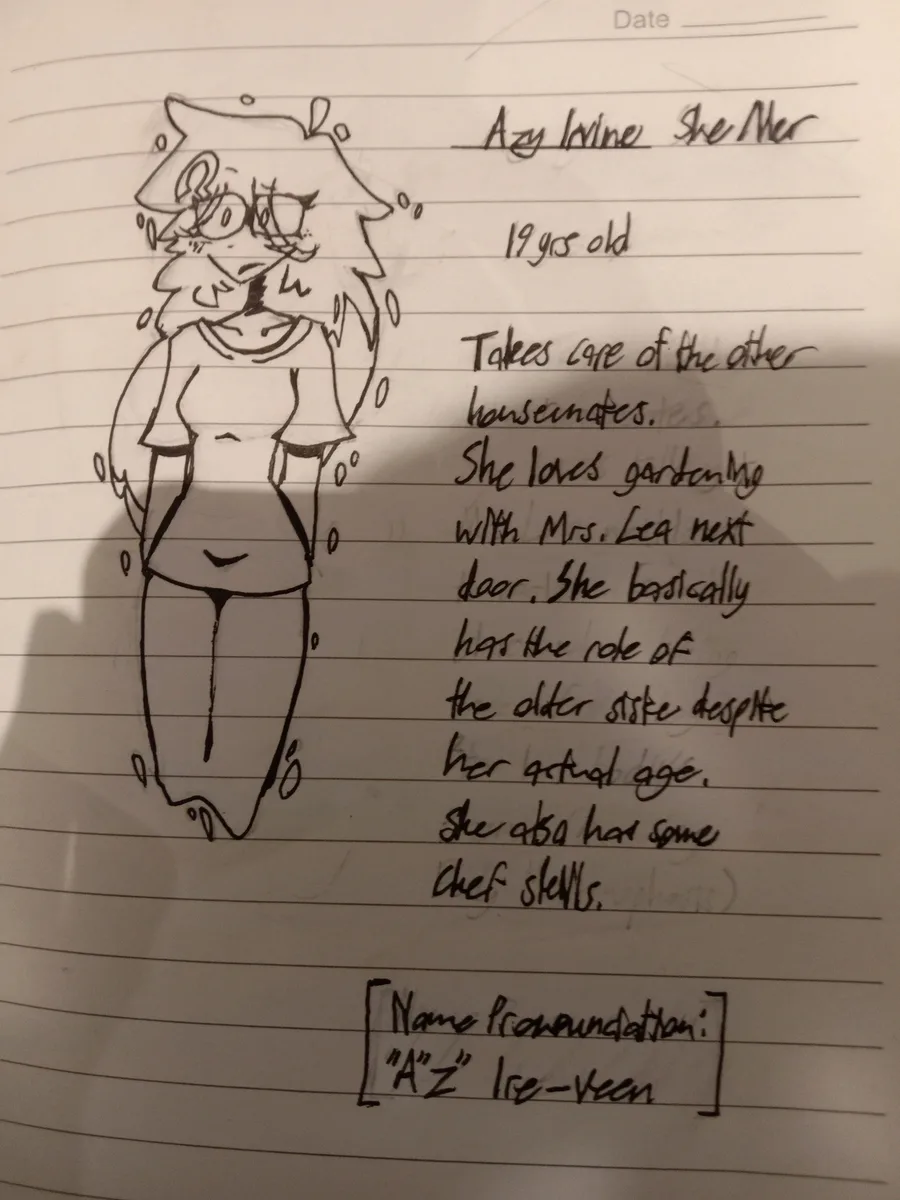 Date
Azy Irvine She/Her
19 yrs old
Takes care of the other
housemates.
She loves gardening
with Mrs. Lea next
door. She basically
has the role of
the older siste despite
her actual age.
She also has some
chef skills.
Name Pronounciation:
"A" Z" Ire-veen